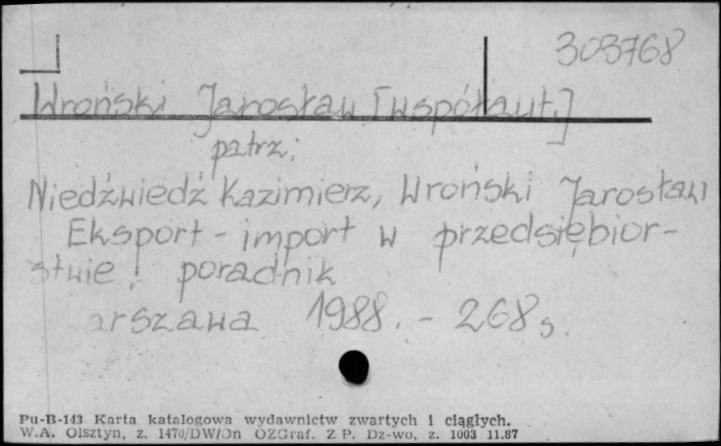 303768
Wroński Jarosław [współaut.]
patrz:
Niedźwiedź Kazimierz, Wroński Jarosław
Eksport - import w przedsiębior-
stwie : poradnik
arszawa 1988. - 268 s.
Pu-B-143 Karta katalogowa wydawnictw zwartych i ciągłych.
W.A. Olsztyn, z. 1470/DW/On OZGraf. Z P. Dz-wo, z. 1003 11.87